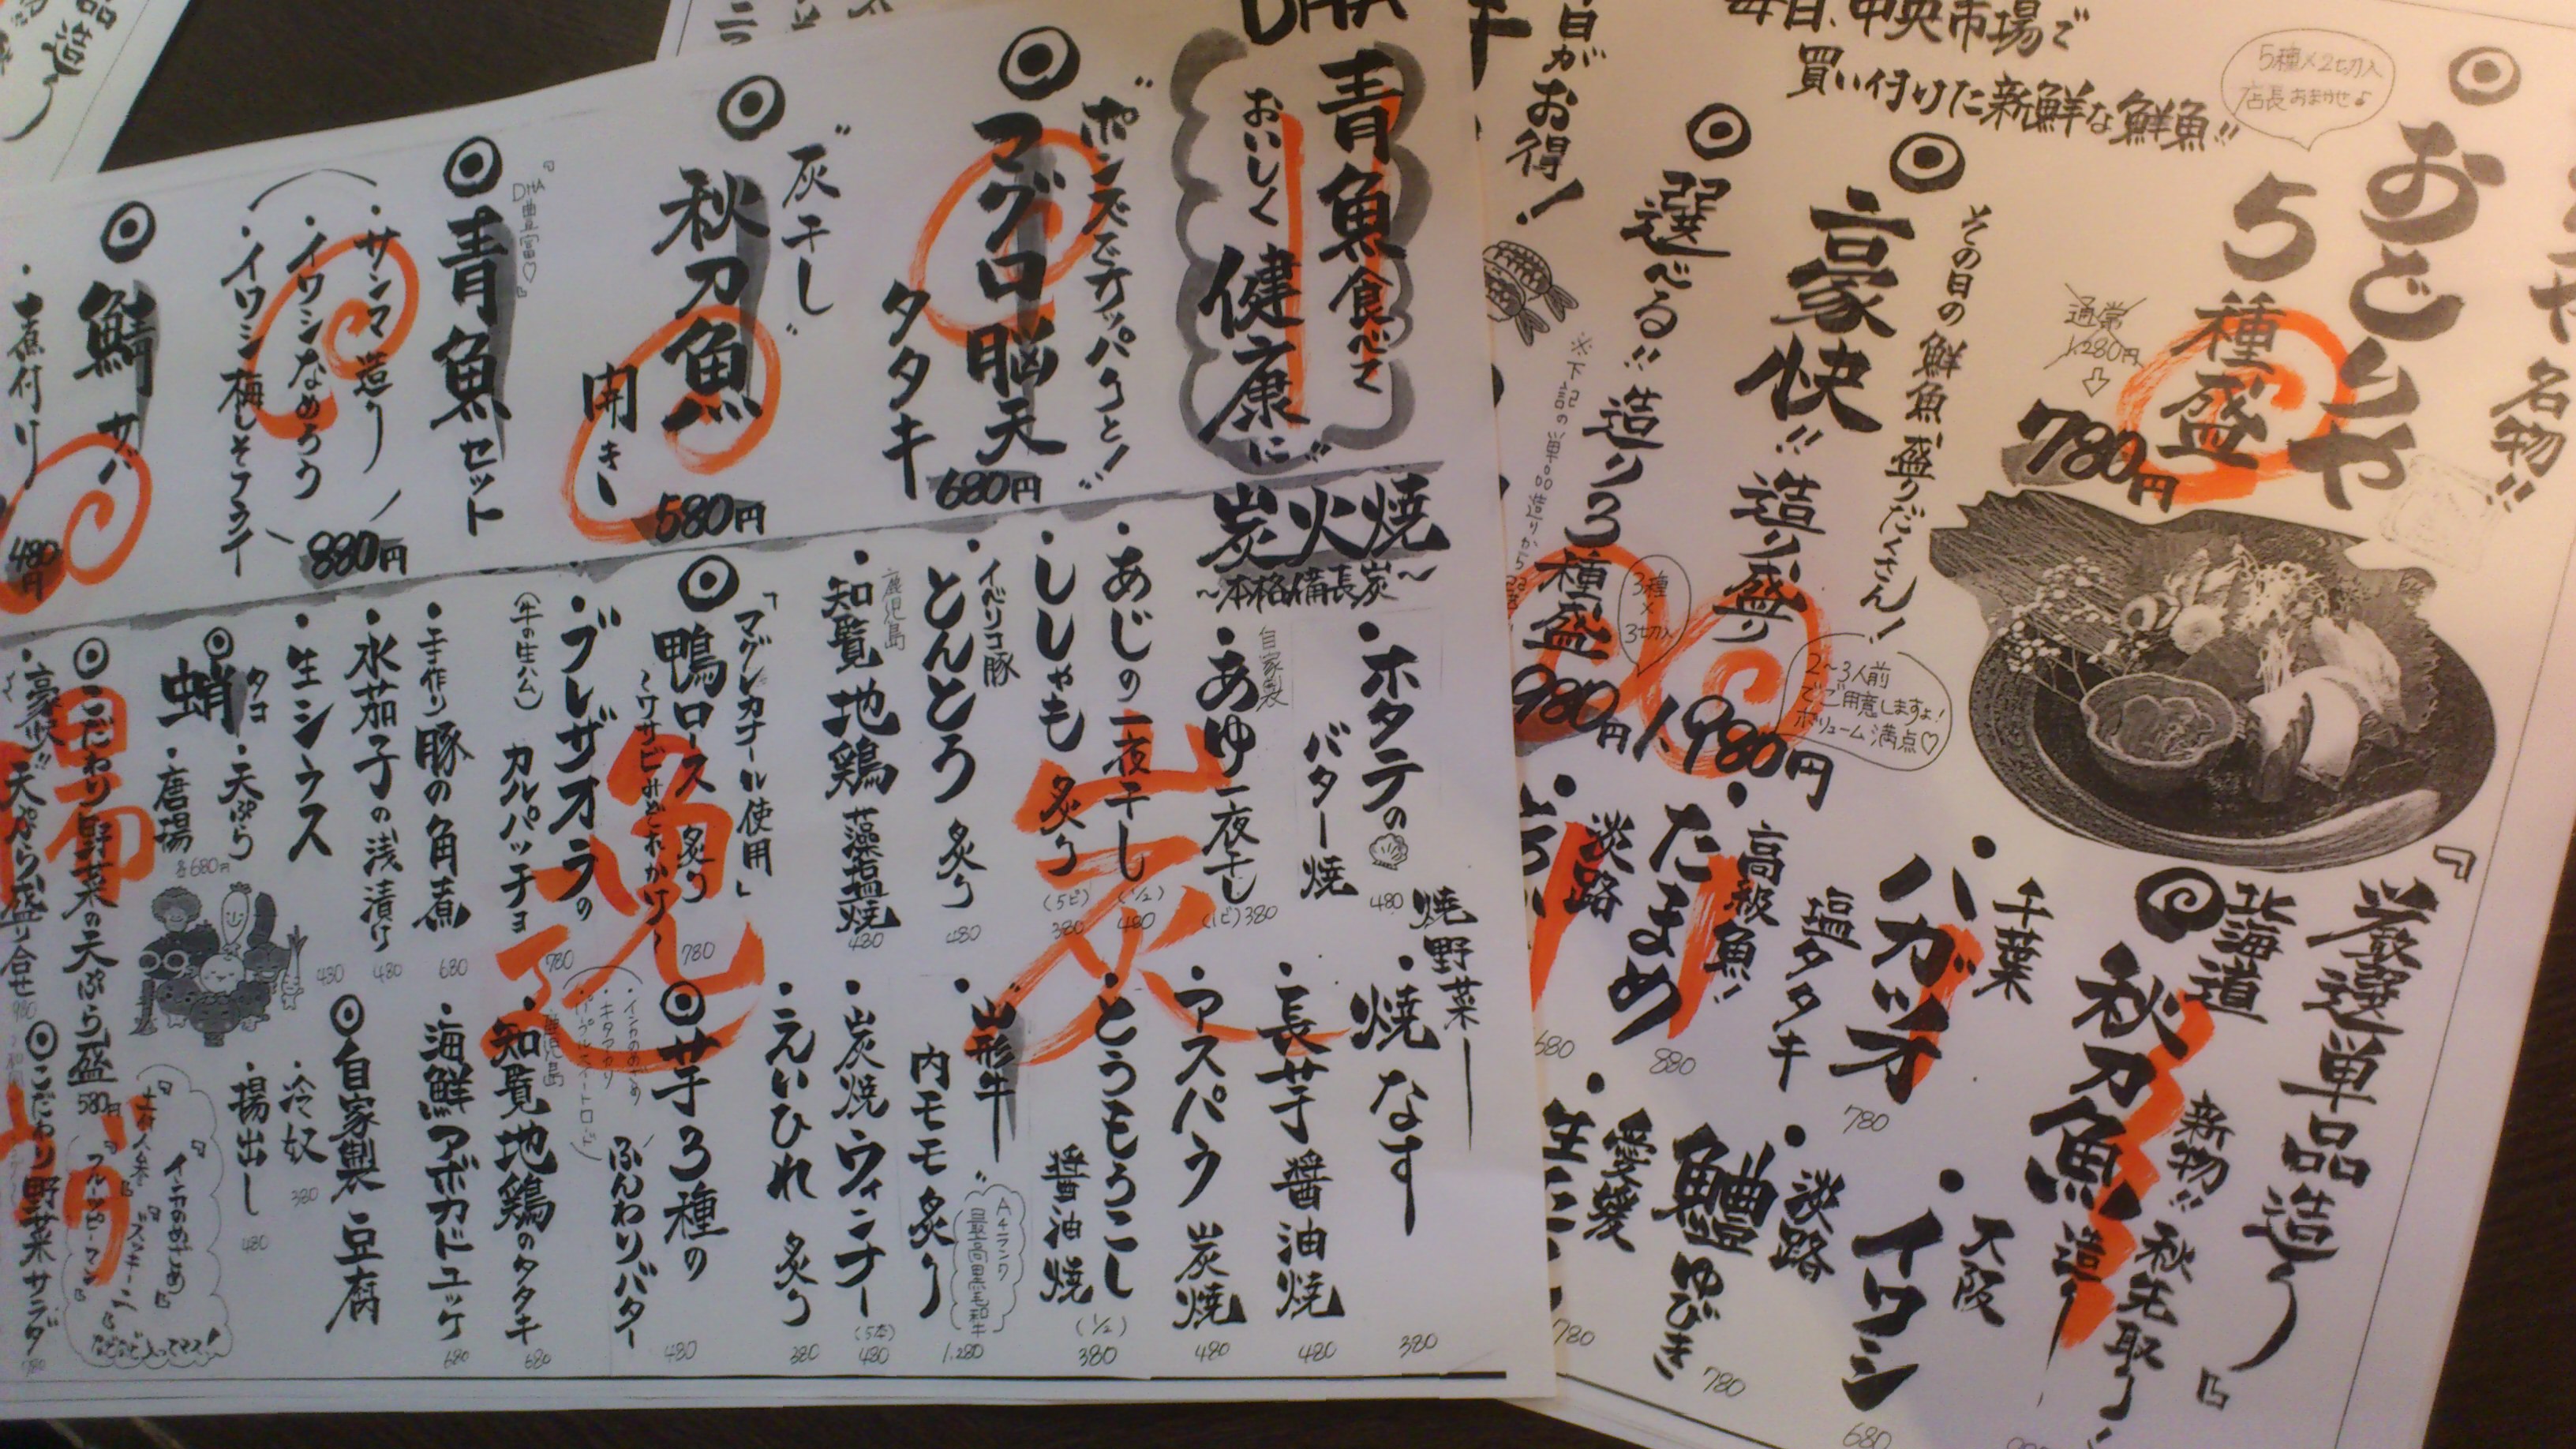 名物!!
おどりや
5種盛
5種×2切入
店長おまかせ♪
通常
1,280円
780円
毎日、中央市場で
買い付けた新鮮な鮮魚!!
その日の鮮魚盛りだくさん!
豪快!!造り盛り
1,980円
2〜3人前
でご用意しますよ!
ボリューム満点♡
選べる!!造り3種盛
3種
×
3切入
980円
日がお得!
『厳選単品造り』
北海道
秋刀魚造り
新物!!秋先取り!
千葉
ハガツオ
塩タタキ
780
高級魚!
たまめ
880
淡路
680
大阪
イワシ
680
淡路
鱧ゆびき
780
愛媛
780
DHA
青魚食べて
おいしく健康に
"ポンズでサッパリと!"
マグロ脳天
タタキ
680円
"灰干し"
秋刀魚
開き
580円
『DHA豊富♡』
青魚セット
・サンマ造り
・イワシなめろう
・イワシ梅しそフライ
880円
鯖サバ
・煮付け
480円
炭火焼
〜本格備長炭〜
・ホタテの
バター焼
480
自家製
・あゆ一夜干し
(1ピ)380
・あじの一夜干し
(1/2)
480
・ししゃも炙り
(5ピ)
380
・イベリコ豚
とんとろ炙り
480
鹿児島
・知覧地鶏藻塩焼
480
「マグレカナール使用」
鴨ロース炙り
〜ワサビみぞれかけ〜
780
・ブレザオラの
(牛の生ハム)
カルパッチョ
780
・手作り豚の角煮
680
・水茄子の浅漬け
480
・生シラス
430
蛸タコ
・天ぷら
・唐揚
各680円
こだわり野菜の天ぷら盛
580円
・豪快!!天ぷら盛り合せ
980
焼野菜
・焼なす
380
・長芋醤油焼
480
・アスパラ炭焼
480
・とうもろこし
醤油焼
(1/2)
380
・山形牛
内モモ炙り
A4ランク
最高黒毛和牛
1,280
・炭焼ウィンナー
(5本)
480
・えいひれ炙り
380
芋3種の
ふんわりバター
・インカのめざめ
・キタアカリ
480
鹿児島
・知覧地鶏のタタキ
680
・海鮮アボカドユッケ
680
自家製豆腐
・冷奴
380
・揚出し
480
『インカのめざめ』
『ズッキーニ』
『フルーツピーマン』
などなど入ってマス!
こだわり野菜サラダ
780